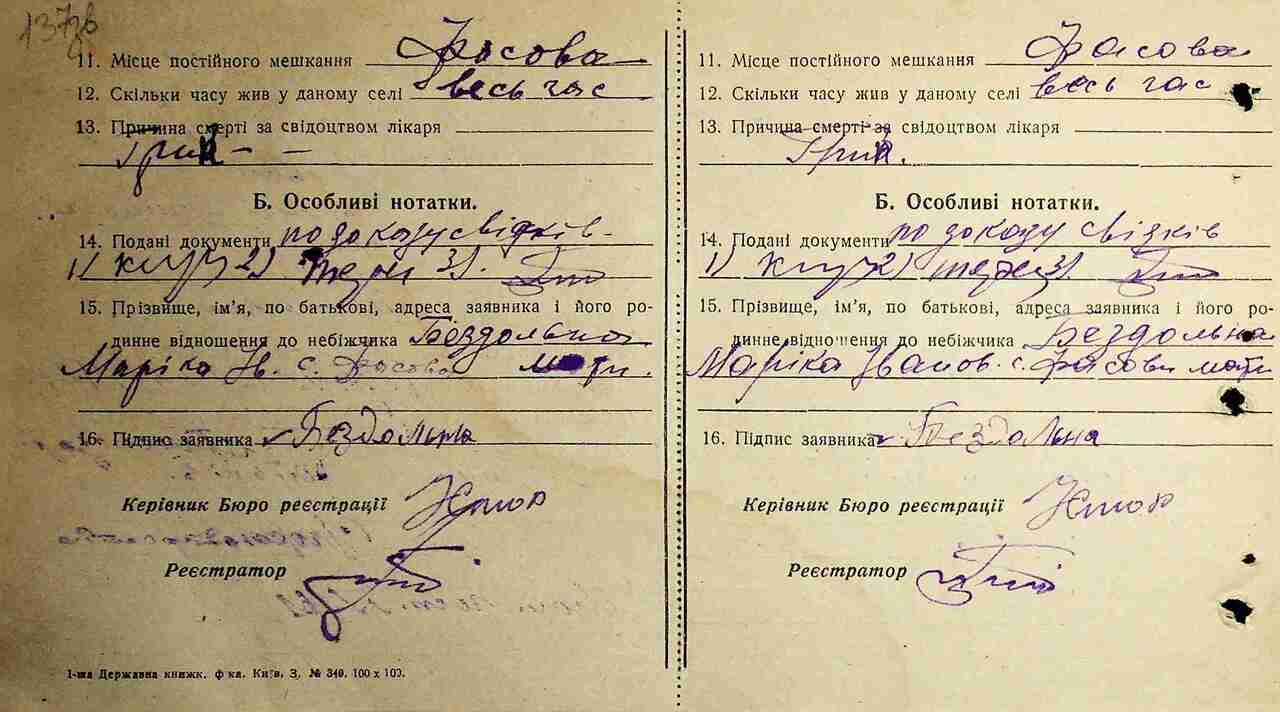 137зв
11. Місце постійного мешкання Фасова
12. Скільки часу жив у даному селі весь час
13. Причина смерті за свідоцтвом лікаря
Грип - -
Б. Особливі нотатки.
14. Подані документи по доказу свідків
1) 2) 3).
15. Прізвище, ім'я, по батькові, адреса заявника і його ро-
динне відношення до небіжчика Бездольна
Маріка Ів. с. Фасова мати.
16. Підпис заявника Бездольна
Керівник Бюро реєстрації
Реєстратор
1-ша Державна книжк. ф-ка. Київ, З. № 340. 100 х 100.
11. Місце постійного мешкання Фасова
12. Скільки часу жив у даному селі весь час
13. Причина смерті за свідоцтвом лікаря
Грип.
Б. Особливі нотатки.
14. Подані документи по доказу свідків
1) 2) 3)
15. Прізвище, ім'я, по батькові, адреса заявника і його ро-
динне відношення до небіжчика Бездольна
Маріка Іванов. с. Фасови мати
16. Підпис заявника Бездольна
Керівник Бюро реєстрації
Реєстратор